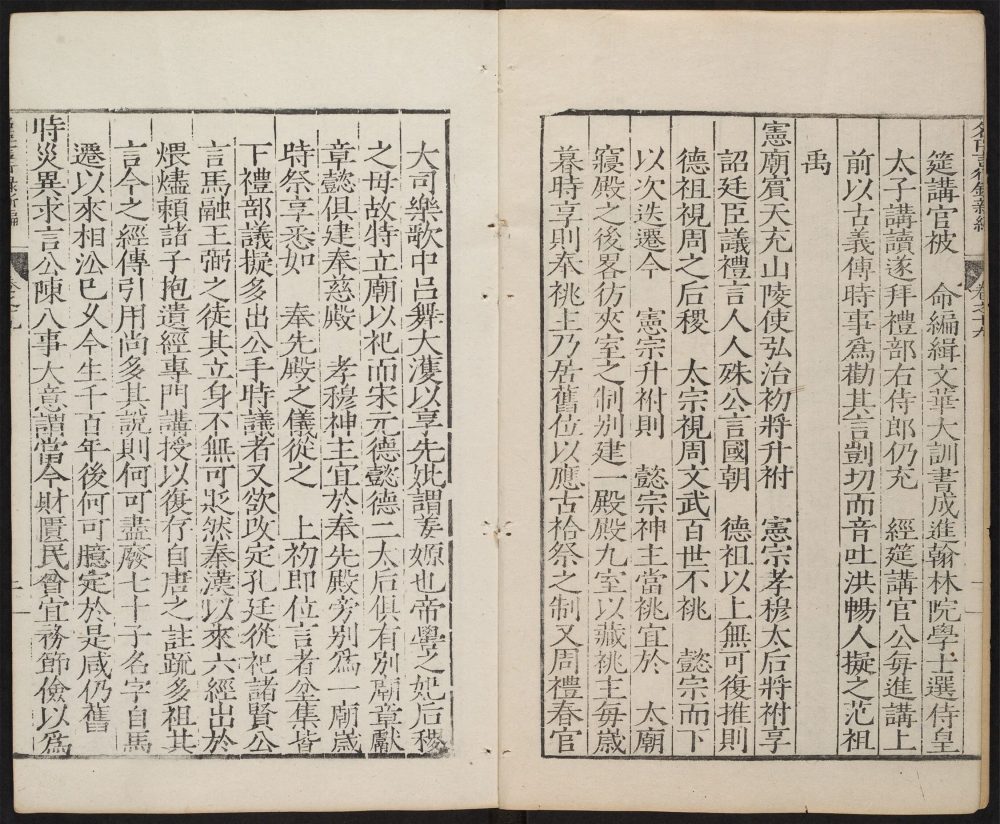 名臣言行錄新編
卷之十九
筵講官被　命編緝文華大訓書成進翰林院學士選侍皇
太子講讀遂拜禮部右侍郎仍充　經筵講官公每進講上
前以古義傅時事爲勸其言剴切而音吐洪暢人擬之范祖
禹
憲廟賔天充山陵使弘治初將升祔　憲宗孝穆太后將祔享
詔廷臣議禮言人人殊公言國朝　德祖以上無可復推則
德祖視周之后稷　太宗視周文武百世不祧　懿宗而下
以次迭遷今　憲宗升祔則　懿宗神主當祧宜於　太廟
寢殿之後畧彷夾室之制別建一殿殿九室以藏祧主每歲
暮時享則奉祧主乃居舊位以應古祫祭之制又周禮春官
大司樂歌中呂舞大濩以享先妣謂姜嫄也帝嚳之妃后稷
之母故特立廟以祀而宋元德懿德二太后俱有別廟章獻
章懿俱建奉慈殿　孝穆神主宜於奉先殿旁別爲一廟歲
時祭享悉如　奉先殿之儀從之　上初即位言者坌集皆
下禮部議擬多出公手時議者又欲改定孔廷從祀諸賢公
言馬融王弼之徒其立身不無可疵然秦漢以來六經出於
煨燼頼諸子抱遺經專門講授以復存自唐之註䟽多祖其
言今之經傳引用尚多其說則何可盡廢七十子名字自馬
遷以來相沿已乆今生千百年後何可臆定於是咸仍舊
時災異求言公陳八事大意謂當今財匱民窘宜務節儉以爲